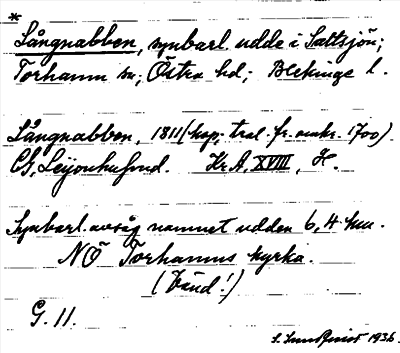 *
Långnabben, synbarl. udde i Saltsjön;
Torhamn sn; Östra hd; Blekinge l.
Långnabben, 1811 (kop. trol. fr. omkr. 1700).
CG, Leijonhufvud. Kr.A, XVIII,
Synbarl. avsåg namnet udden 6,4 km.
NÖ Torhamns kyrka.
(Vänd!)
G. 11.
S. Sundquist 1936.